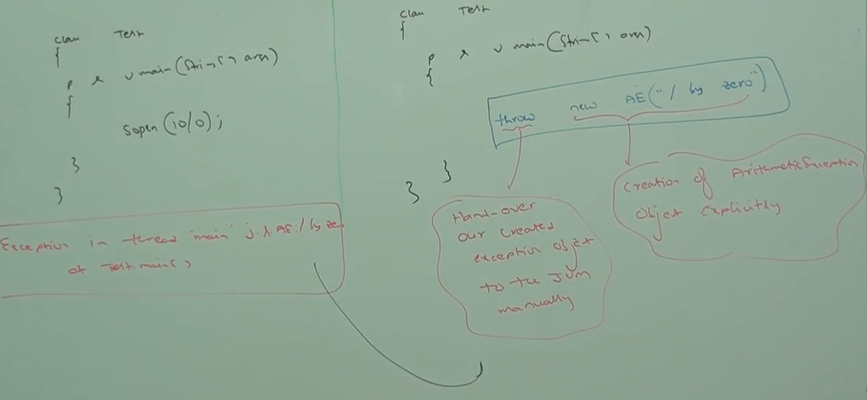 class Test
{
p s v main(String[] args)
{
sopln(10/0);
}
}
Exception in thread "main" j.l.AE: / by zero
at Test.main()
class Test
{
p s v main(String[] args)
{
throw new AE("/ by zero")
}
}
Hand-over
our created
exception object
to the JVM
manually
Creation of ArithmeticException
object explicitly